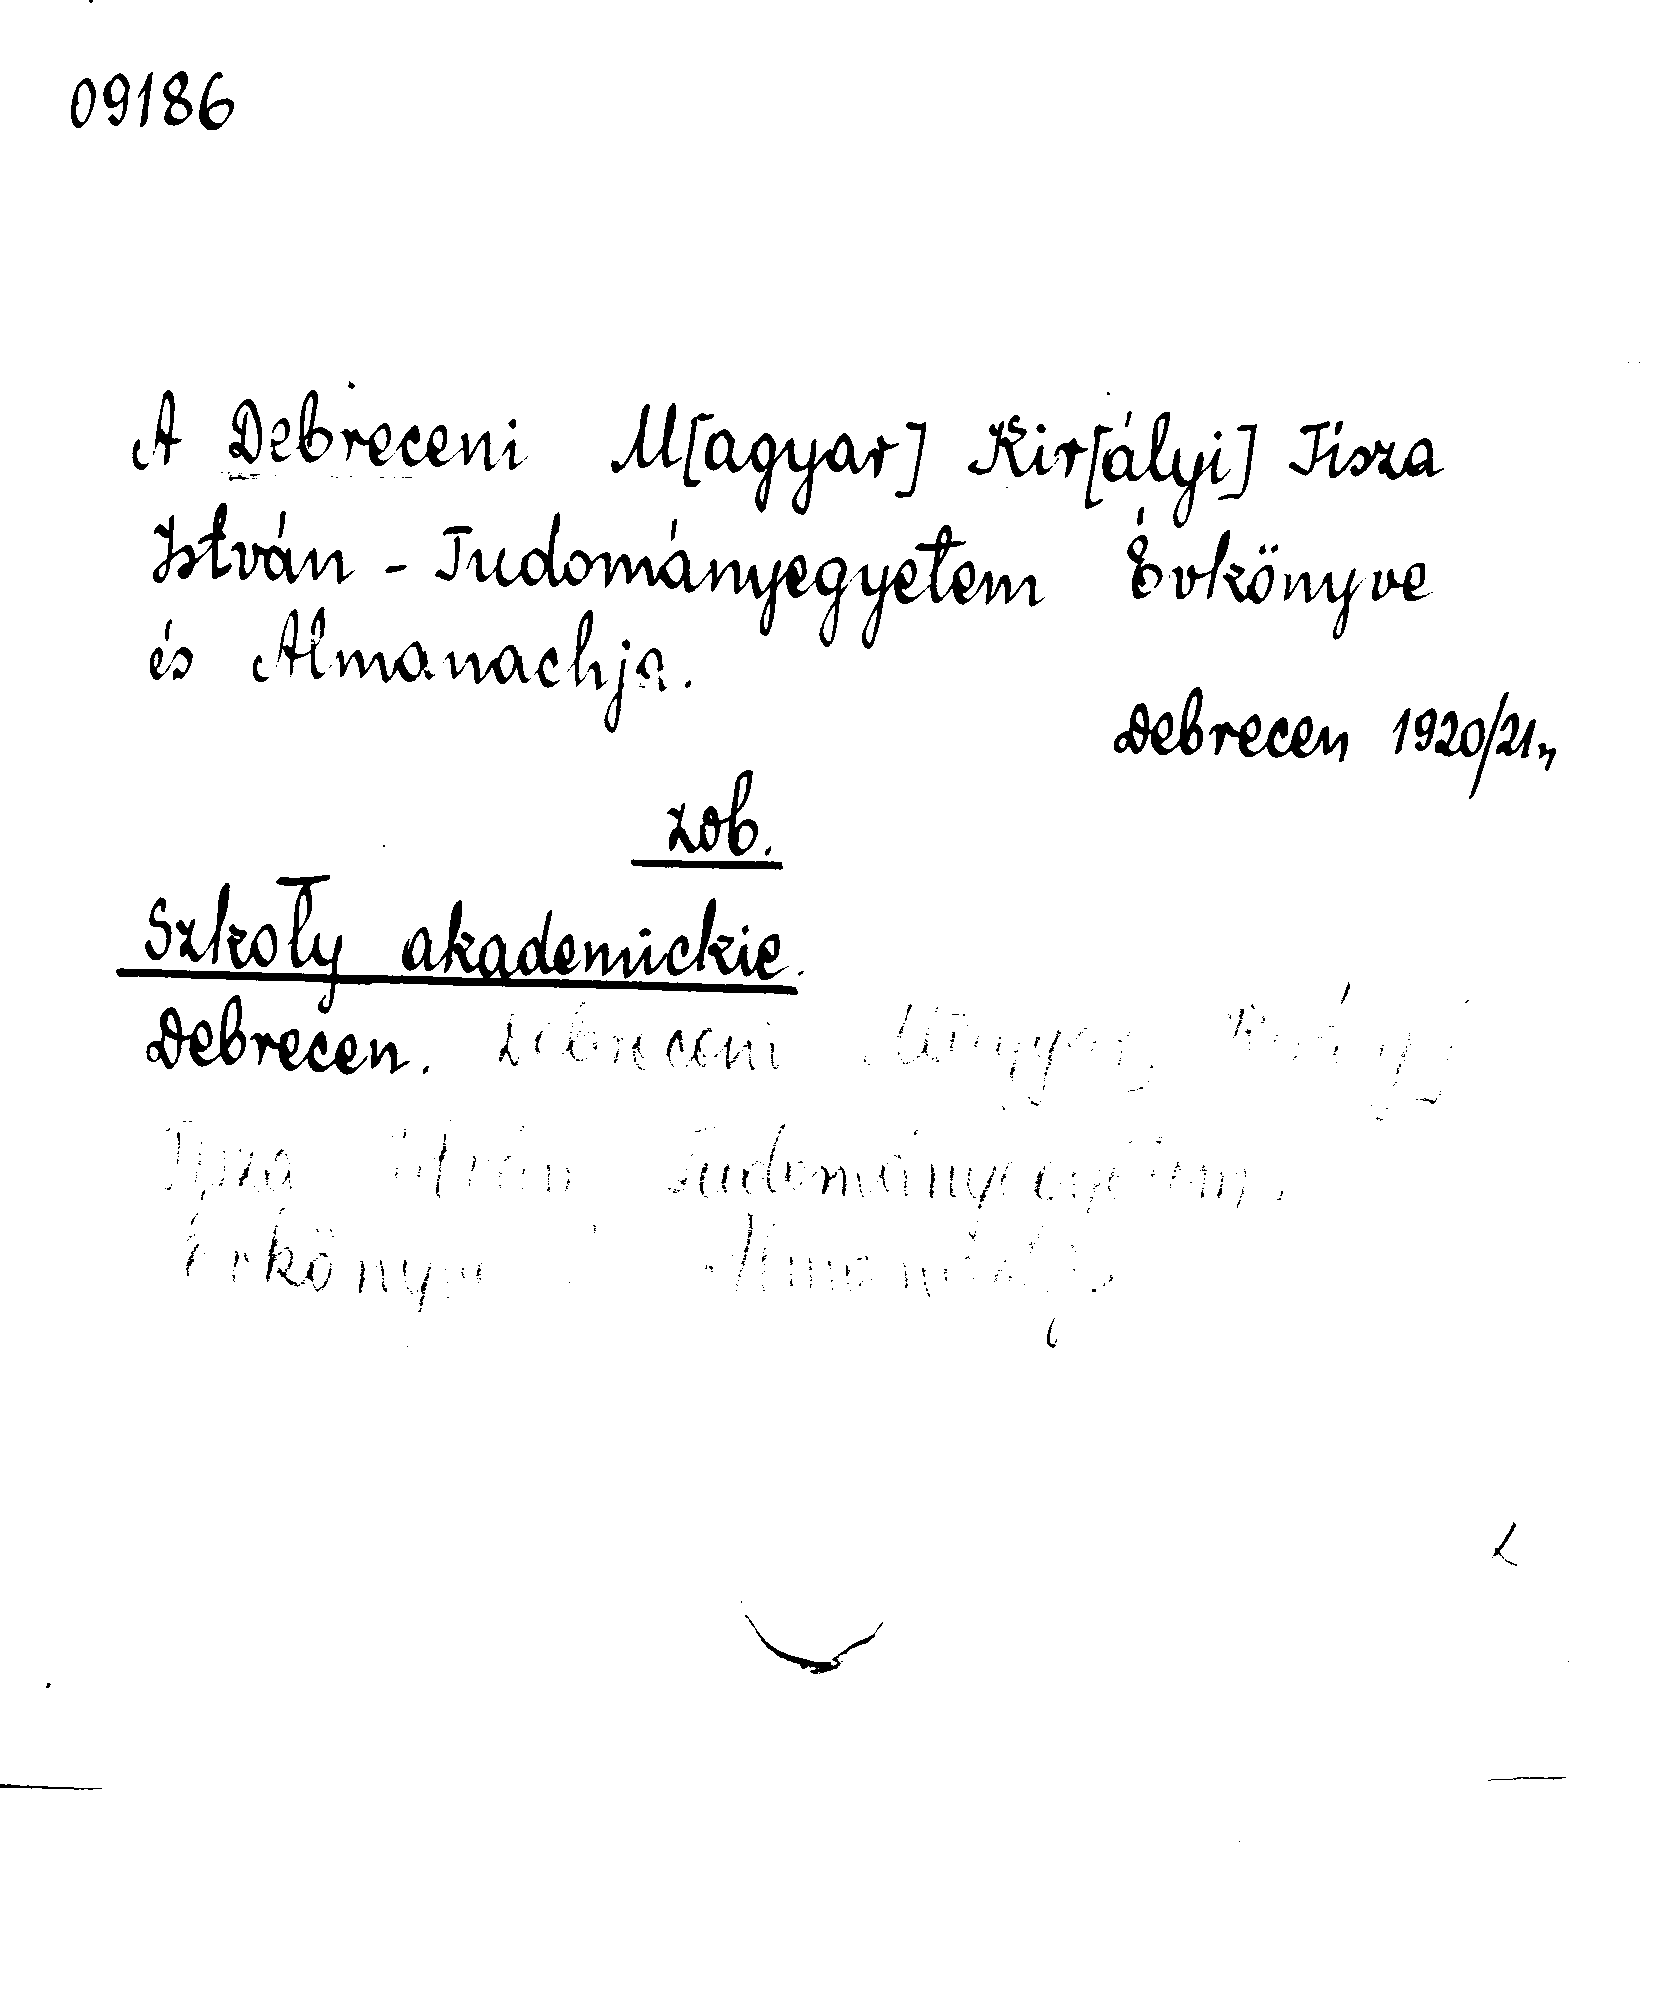 09186
A Debreceni M[agyar] Kir[ályi] Tisza
István - Tudományegyetem Évkönyve
és Almanachja.
Debrecen 1920/21,,
zob.
Szkoły akademickie.
Debrecen. Debreceni
Tisza István Tudományegyetem.